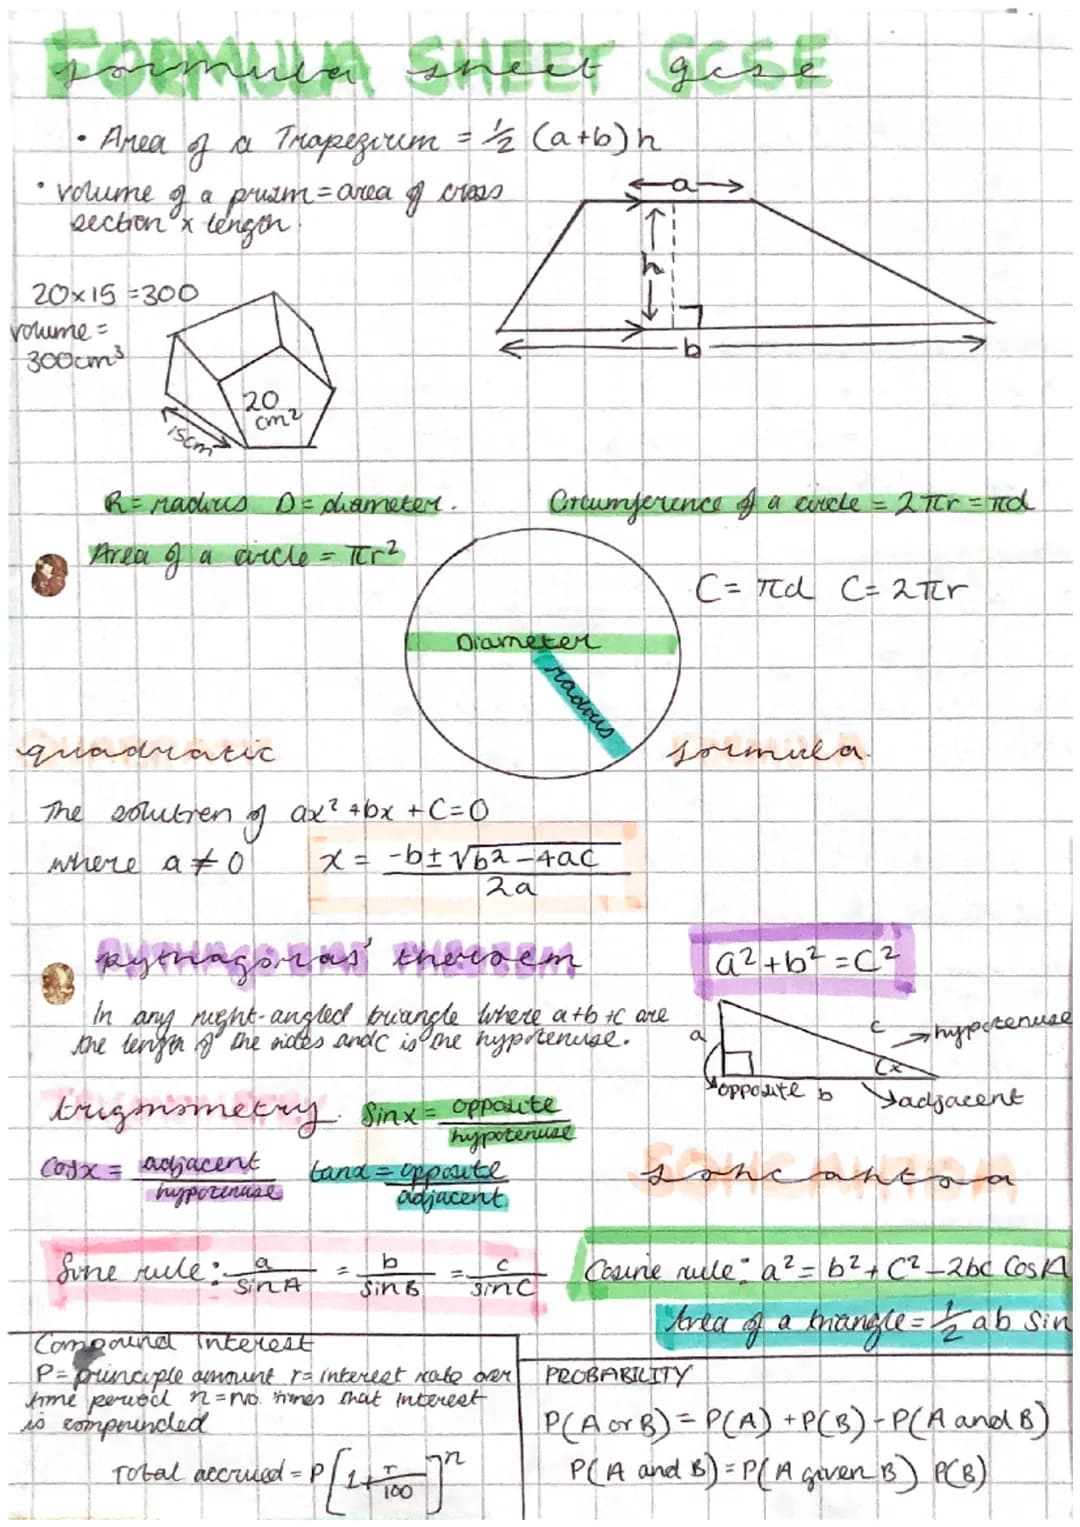 FORMULA SHEET gcse
• Area of a Trapezium = ½ (a+b)h
• volume of a prism = area of cross
section x length.
a
h
b
20×15 =300
volume =
300cm³
20
cm²
15cm
R= radius D= diameter.
Circumference of a circle = 2πr = πd
Area of a circle = πr²
C= πd C= 2πr
Diameter
radius
quadratic formula.
The solution of ax² + bx + C=0
where a ≠ 0 x = -b±√b²-4ac / 2a
pythagoras' theroem
a²+b²=C²
In any right-angled triangle where a+b+c are
the length of the sides and c is the hypotenuse.
a
c
hypotenuse
x
opposite b
adjacent
trigonometry. Sinx = opposite / hypotenuse
Cosx = adjacent / hypotenuse tanx = opposite / adjacent
SOHCAHTOA
Sine rule: a / SinA = b / SinB = c / SinC
Cosine rule: a² = b² + C² - 2bc CosA
Area of a triangle = ½ ab Sin
Compound Interest
P= principle amount r= interest rate over
time period n= no. times that interest
is compounded
Total accrued = P[1+ r/100]ⁿ
PROBABILITY
P(A or B) = P(A) + P(B) - P(A and B)
P(A and B) = P(A given B) P(B)